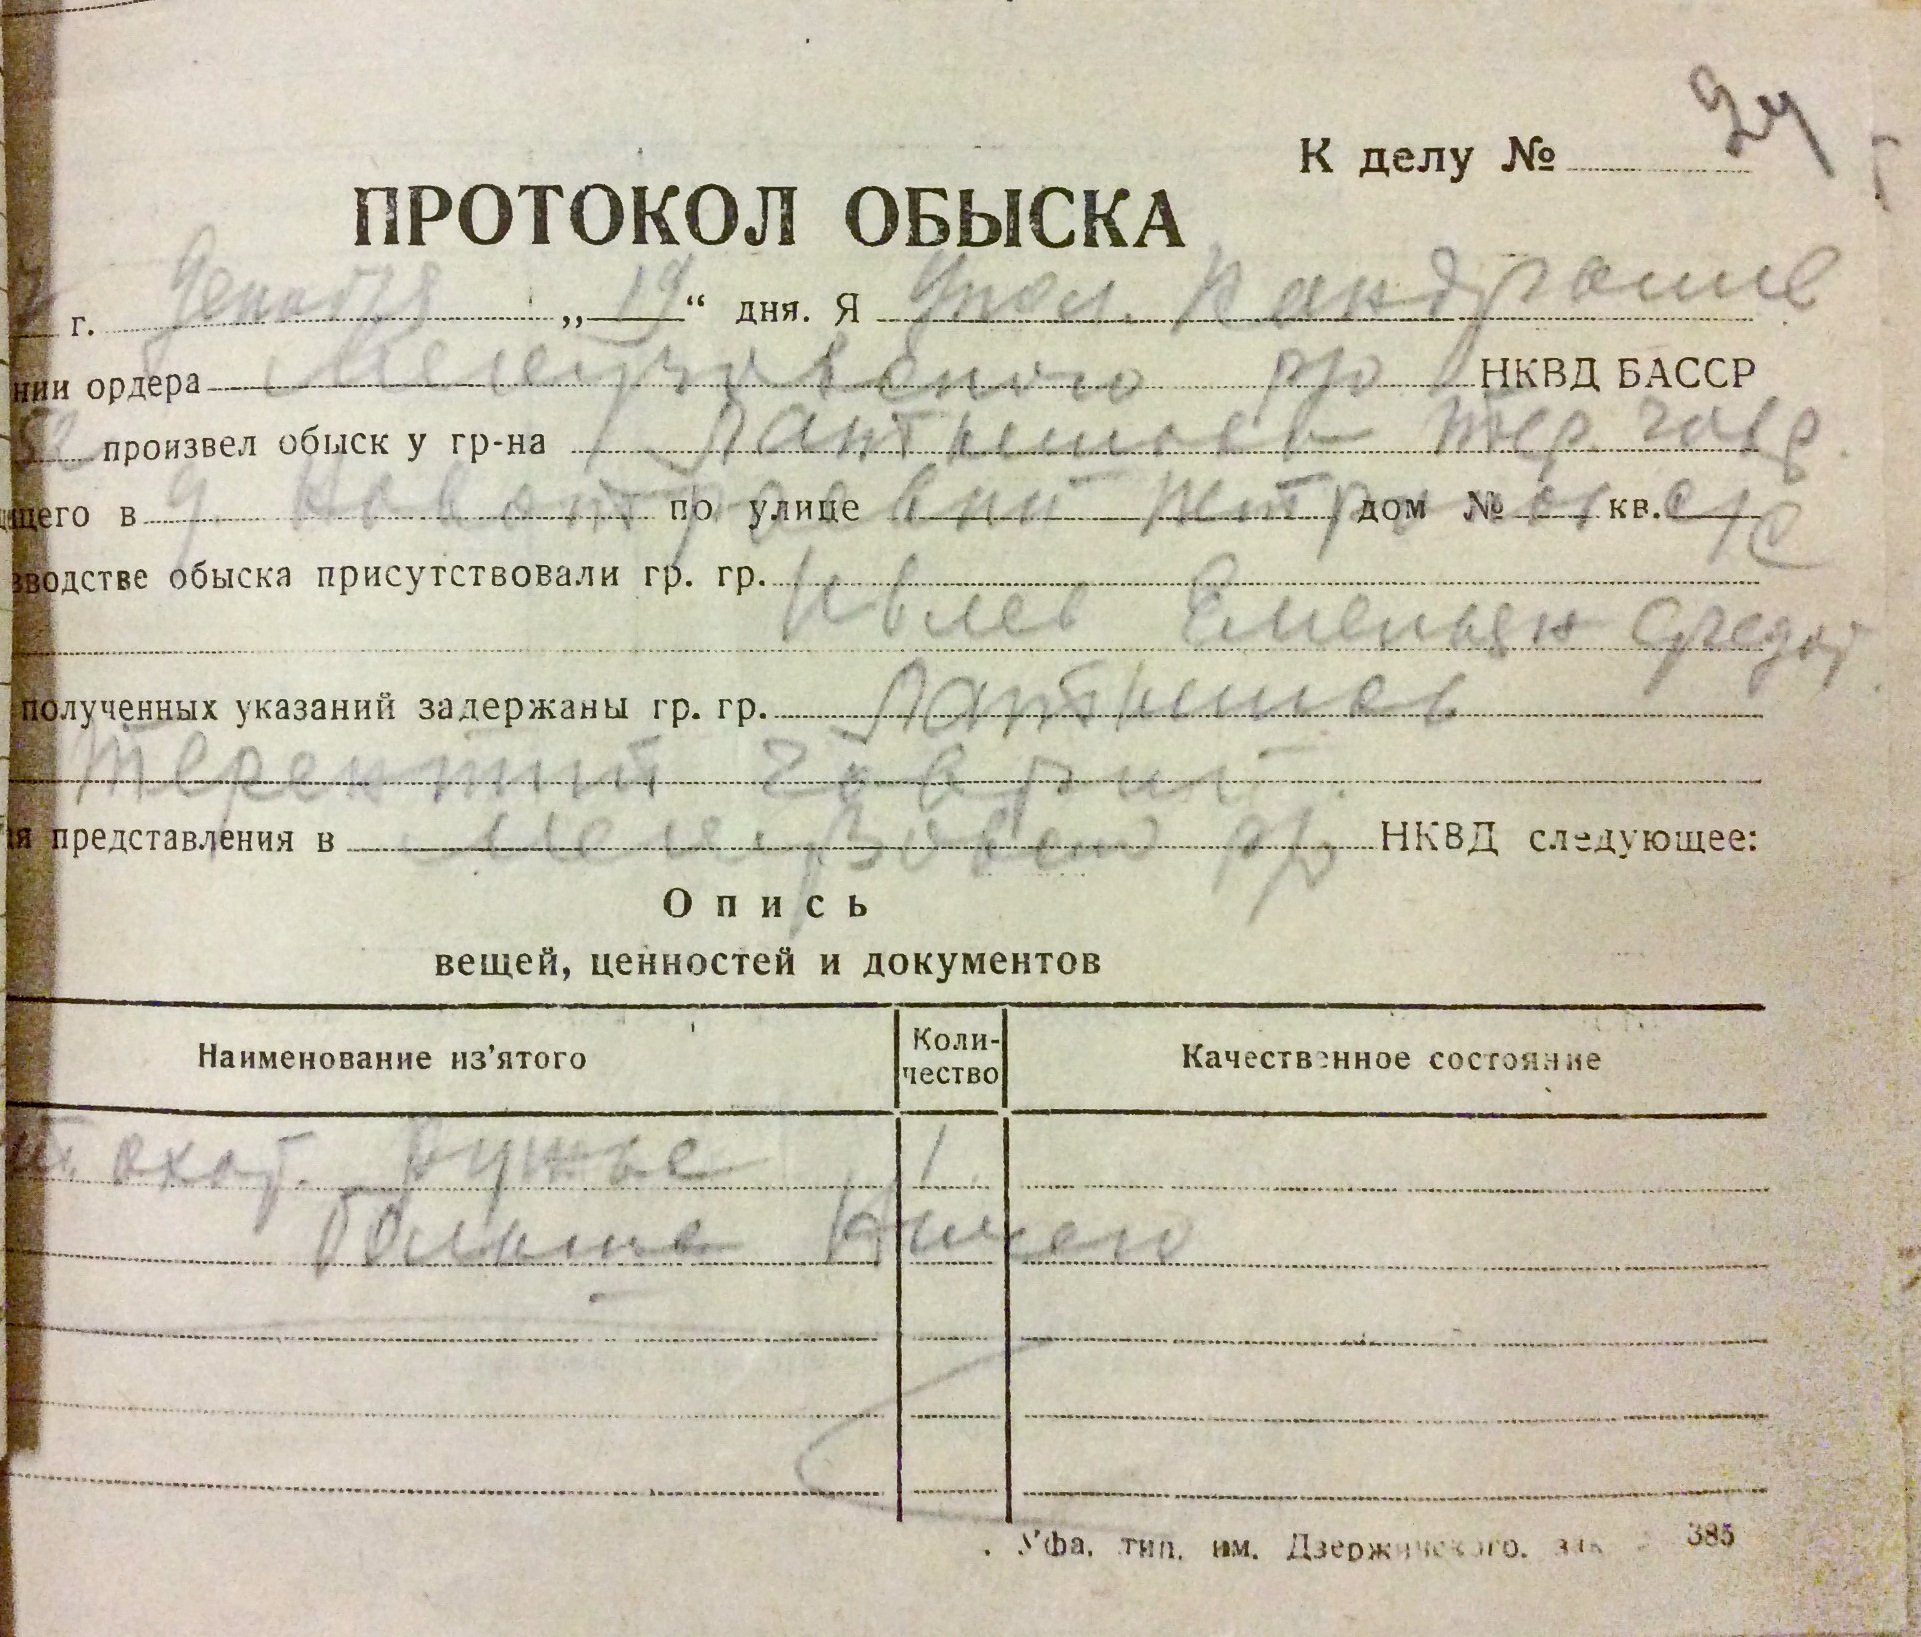 К делу №
24
ПРОТОКОЛ ОБЫСКА
г. Декабря „19“ дня. Я Упол. Кандрашев
нии ордера Мелеузовского р/о НКВД БАССР
52 произвел обыск у гр-на Лактышев Тер. Гавр.
щего в д. Ново по улице дом № кв. с/с
зводстве обыска присутствовали гр. гр.
Ивлев Емельян
полученных указаний задержаны гр. гр. Лактышев
Терентий Гаврил.
я представления в Мелеузовское р/о НКВД следующее:
Опись
вещей, ценностей и документов
Наименование из'ятого Коли-чество Качественное состояние
охот. Ружье 1
Больше Ничего
Уфа, тип. им. Дзержинского. зак. 385